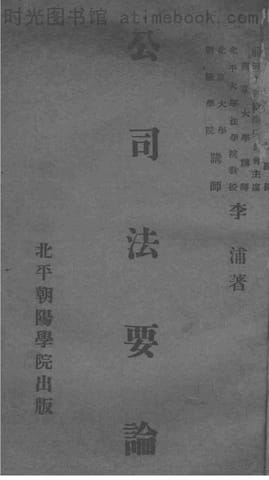 时光图书馆·atimebook.com
北平大學法學院教授
北京大學
朝陽學院 講師
李浦著
公司法要論
北平朝陽學院出版